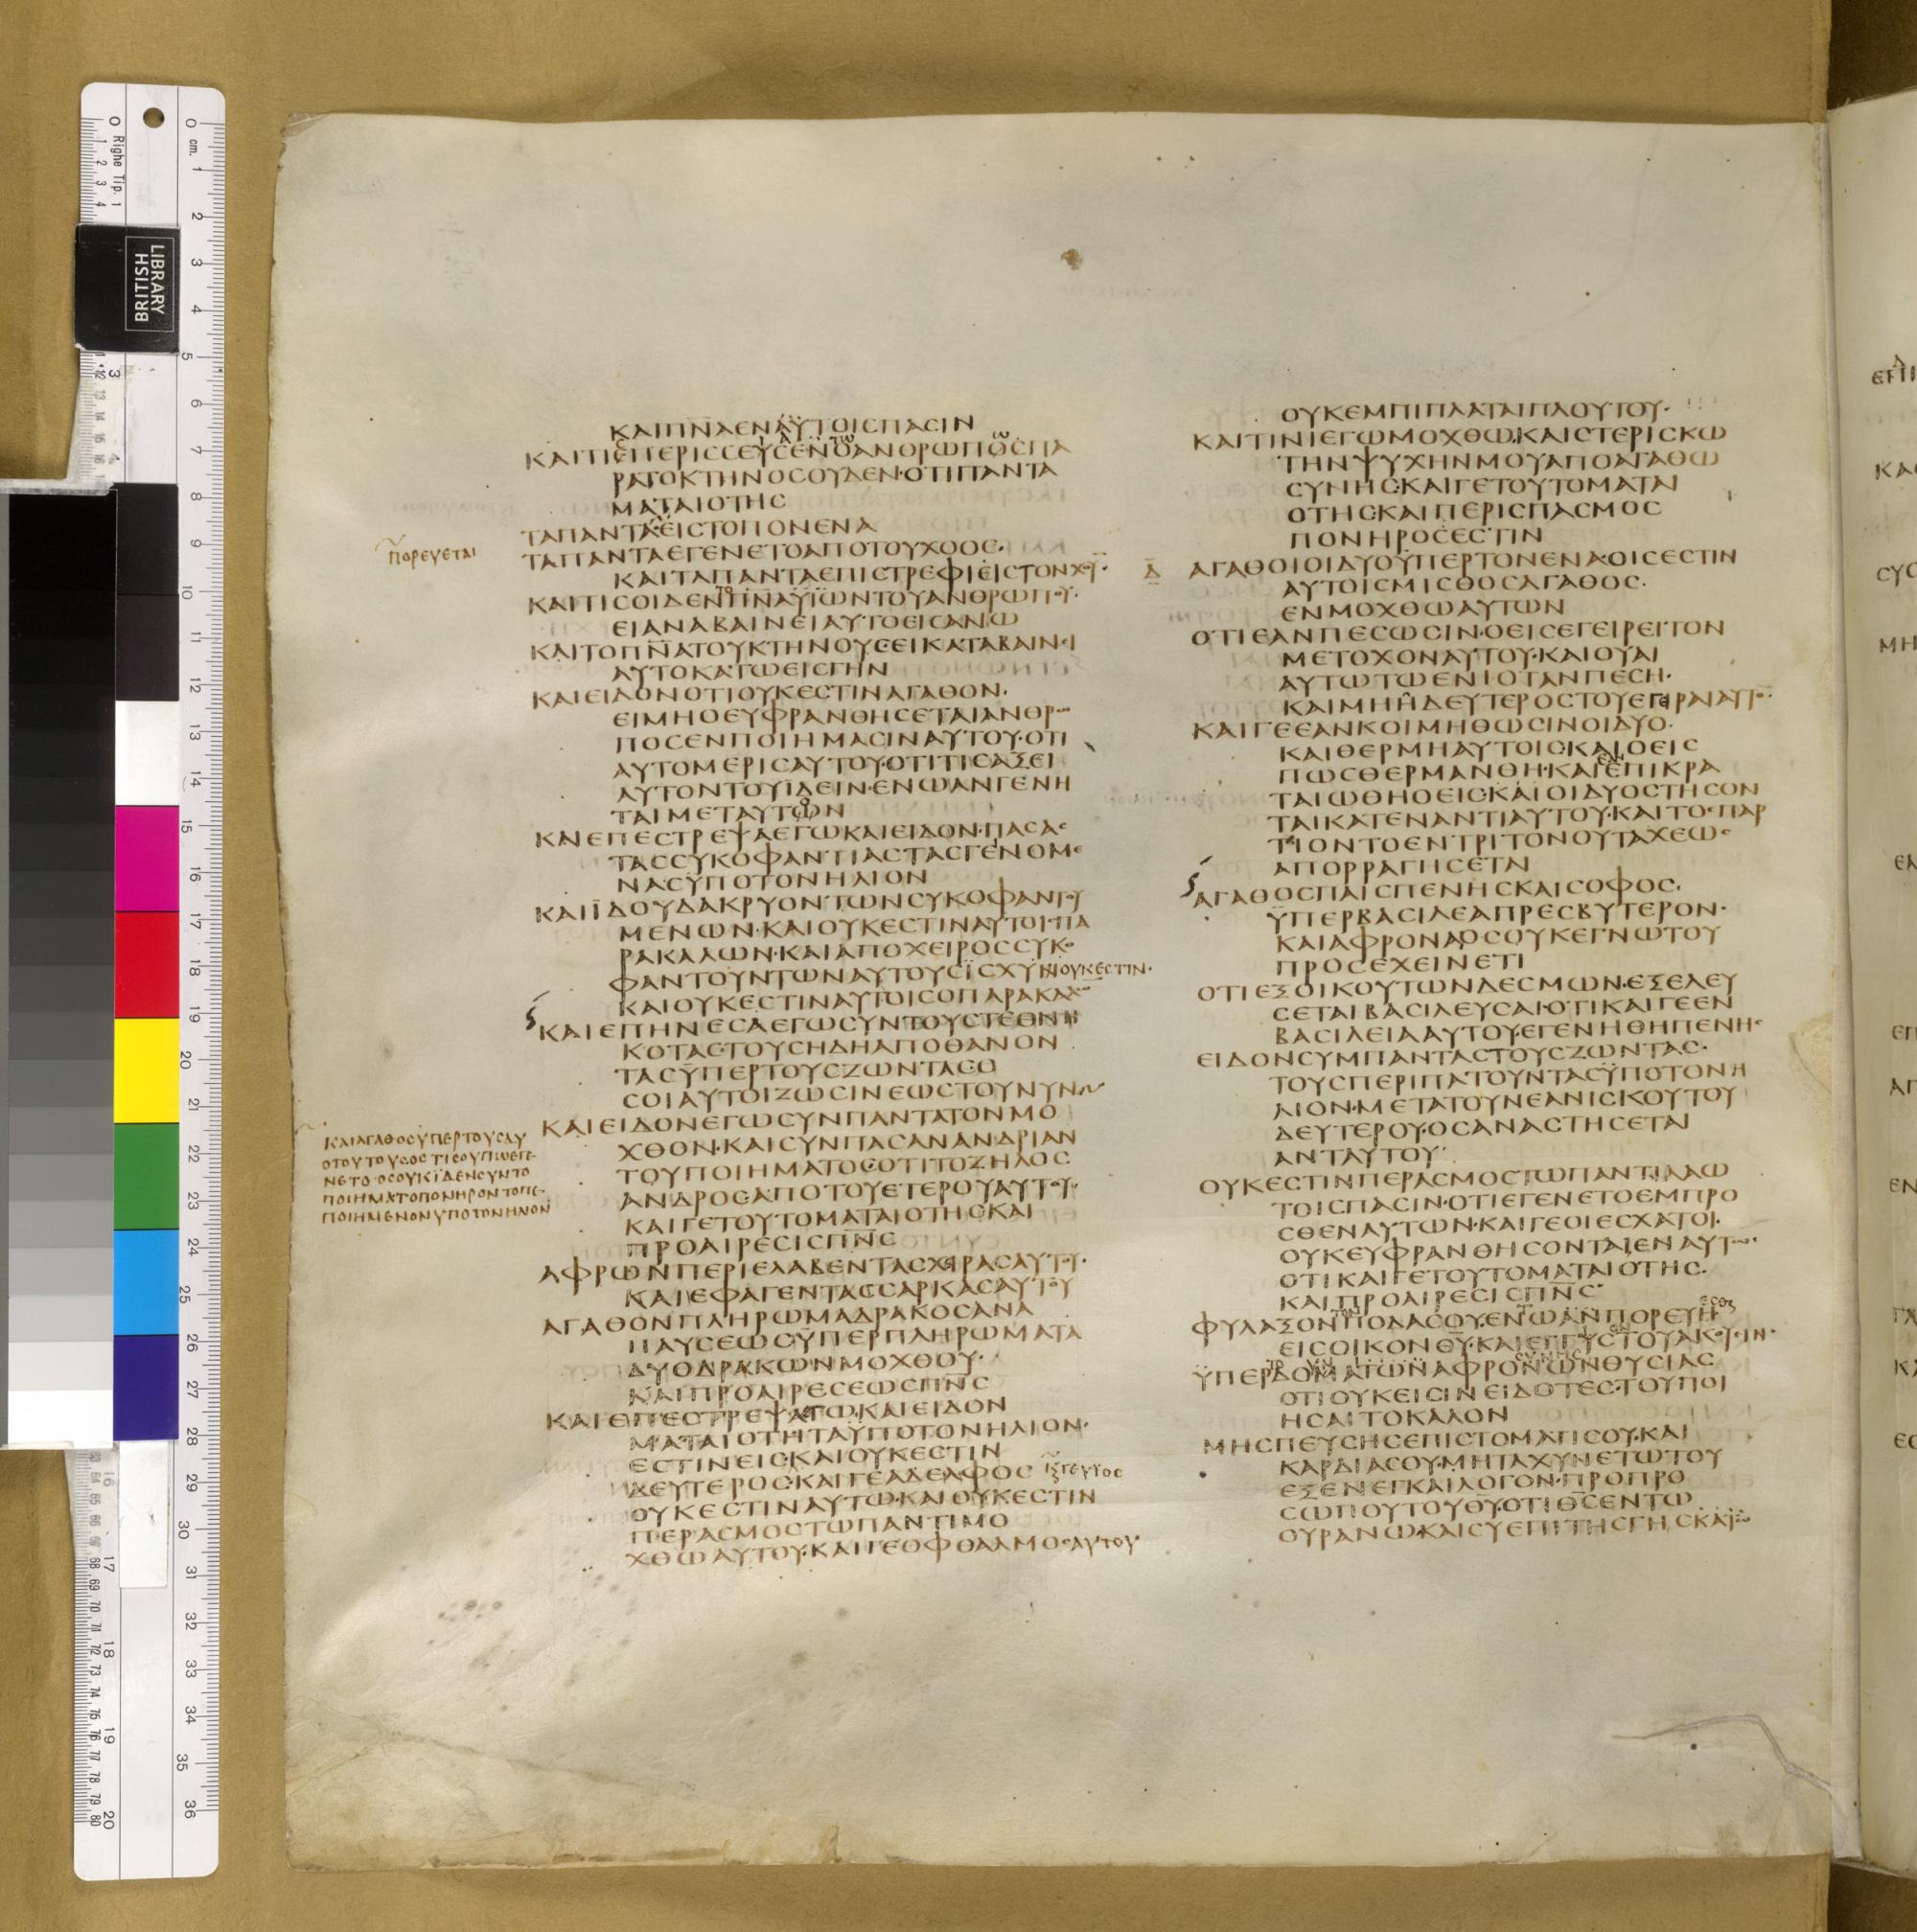 ΚΑΙΠΝΑΕΝΑΥΤΟΙΣΠΑΣΙΝ
ΡΑΤΟΚΤΗΝΟΣΟΥΔΕΝ·ΟΤΙΠΑΝΤΑ
ΜΑΤΑΙΟΤΗΣ
ΤΑΠΑΝΤΑΕΙΣΤΟΠΟΝΕΝΑ
ΠΟΡΕΥΕΤΑΙ
ΤΑΠΑΝΤΑΕΓΕΝΕΤΟΑΠΟΤΟΥΧΟΟΣ·
ΚΑΙΤΑΠΑΝΤΑΕΠΙΣΤΡΕΦΙΕΙΣΤΟΝΧΟΥ·
ΕΙΑΝΑΒΑΙΝΕΙΑΥΤΟΕΙΣΑΝΩ
ΚΑΙΤΟΠΝΑΤΟΥΚΤΗΝΟΥΣ·ΕΙΚΑΤΑΒΑΙΝΙ
ΑΥΤΟΚΑΤΩΕΙΣΓΗΝ
ΚΑΙΕΙΔΟΝΟΤΙΟΥΚΕΣΤΙΝΑΓΑΘΟΝ·
ΕΙΜΗΟΕΥΦΡΑΝΘΗΣΕΤΑΙΑΝΘΡΩ
ΠΟΣΕΝΠΟΙΗΜΑΣΙΝΑΥΤΟΥ·ΟΤΙ
ΑΥΤΟΜΕΡΙΣΑΥΤΟΥ·ΟΤΙΤΙΣΑΞΕΙ
ΑΥΤΟΝΤΟΥΪΔΕΙΝ·ΕΝΩΑΝΓΕΝΗ
ΤΑΙΜΕΤΑΥΤΩΝ
ΚΑΙΕΠΕΣΤΡΕΨΑΕΓΩΚΑΙΕΙΔΟΝ·ΠΑΣΑΣ
ΤΑΣΣΥΚΟΦΑΝΤΙΑΣΤΑΣΓΕΝΟΜΕ
ΝΑΣΥΠΟΤΟΝΗΛΙΟΝ
ΚΑΙΪΔΟΥΔΑΚΡΥΟΝΤΩΝΣΥΚΟΦΑΝΤΟΥ
ΜΕΝΩΝ·ΚΑΙΟΥΚΕΣΤΙΝΑΥΤΟΙΣΠΑ
ΡΑΚΑΛΩΝ·ΚΑΙΑΠΟΧΕΙΡΟΣΣΥΚΟ
ΦΑΝΤΟΥΝΤΩΝΑΥΤΟΥΣΪΣΧΥΝΟΥΚΕΣΤΙΝ·
ΚΑΙΟΥΚΕΣΤΙΝΑΥΤΟΙΣΟΠΑΡΑΚΑΛΩΝ
ΚΑΙΕΠΗΝΕΣΑΕΓΩΣΥΝΤΟΥΣΤΕΘΝΗ
ΚΟΤΑΣ·ΤΟΥΣΗΔΗΑΠΟΘΑΝΟΝ
ΤΑΣΥΠΕΡΤΟΥΣΖΩΝΤΑΣΟ
ΣΟΙΑΥΤΟΙΖΩΣΙΝΕΩΣΤΟΥΝΥΝ
ΚΑΙΑΓΑΘΟΣΫΠΕΡΤΟΥΣΔΥ
ΟΤΟΥΤΟΥΣΟΣΤΙΣΟΥΠΩΕΓΕ
ΝΕΤΟ·ΟΣΟΥΚΪΔΕΝΣΥΝΤΟ
ΠΟΙΗΜΑΤΟΠΟΝΗΡΟΝΤΟΠΕ
ΠΟΙΗΜΕΝΟΝΥΠΟΤΟΝΗΛΙΟΝ
ΚΑΙΕΙΔΟΝΕΓΩΣΥΝΠΑΝΤΑΤΟΝΜΟ
ΧΘΟΝ·ΚΑΙΣΥΝΠΑΣΑΝΑΝΔΡΙΑΝ
ΤΟΥΠΟΙΗΜΑΤΟΣ·ΟΤΙΤΟΖΗΛΟΣ
ΑΝΔΡΟΣΑΠΟΤΟΥΕΤΕΡΟΥΑΥΤΟΥ·
ΚΑΙΓΕΤΟΥΤΟΜΑΤΑΙΟΤΗΣΚΑΙ
ΠΡΟΑΙΡΕΣΙΣΠΝΣ
ΑΦΡΩΝΠΕΡΙΕΛΑΒΕΝΤΑΣΧΙΡΑΣΑΥΤΟΥ·
ΚΑΙΕΦΑΓΕΝΤΑΣΣΑΡΚΑΣΑΥΤΟΥ
ΑΓΑΘΟΝΠΛΗΡΩΜΑΔΡΑΚΟΣΑΝΑ
ΠΑΥΣΕΩΣΥΠΕΡΠΛΗΡΩΜΑΤΑ
ΔΥΟΔΡΑΚΩΝΜΟΧΘΟΥ·
ΚΑΙΠΡΟΑΙΡΕΣΕΩΣΠΝΣ
ΚΑΙΕΠΕΣΤΡΕΨΑΕΓΩΚΑΙΕΙΔΟΝ
ΜΑΤΑΙΟΤΗΤΑΫΠΟΤΟΝΗΛΙΟΝ·
ΕΣΤΙΝΕΙΣ·ΚΑΙΟΥΚΕΣΤΙΝ
ΔΕΥΤΕΡΟΣ·ΚΑΙΓΕΑΔΕΛΦΟΣ
ΟΥΚΕΣΤΙΝΑΥΤΩ·ΚΑΙΟΥΚΕΣΤΙΝ
ΠΕΡΑΣΜΟΣΤΩΠΑΝΤΙΜΟ
ΧΘΩΑΥΤΟΥ·ΚΑΙΓΕΟΦΘΑΛΜΟΣΑΥΤΟΥ
ΟΥΚΕΜΠΙΠΛΑΤΑΙΠΛΟΥΤΟΥ·
ΚΑΙΤΙΝΙΕΓΩΜΟΧΘΩ·ΚΑΙΣΤΕΡΙΣΚΩ
ΤΗΝΨΥΧΗΝΜΟΥΑΠΟΑΓΑΘΩ
ΣΥΝΗΣ·ΚΑΙΓΕΤΟΥΤΟΜΑΤΑΙ
ΟΤΗΣΚΑΙΠΕΡΙΣΠΑΣΜΟΣ
ΠΟΝΗΡΟΣΕΣΤΙΝ
Δ ΑΓΑΘΟΙΟΙΔΥΟΫΠΕΡΤΟΝΕΝΑ·ΟΙΣΕΣΤΙΝ
ΑΥΤΟΙΣΜΙΣΘΟΣΑΓΑΘΟΣ·
ΕΝΜΟΧΘΩΑΥΤΩΝ
ΟΤΙΕΑΝΠΕΣΩΣΙΝ·ΟΕΙΣΕΓΕΙΡΕΙΤΟΝ
ΜΕΤΟΧΟΝΑΥΤΟΥ·ΚΑΙΟΥΑΙ
ΑΥΤΩΤΩΕΝΙΟΤΑΝΠΕΣΗ·
ΚΑΙΜΗΗΔΕΥΤΕΡΟΣΤΟΥΕΓΙΡΑΙΑΥΤΟΝ·
ΚΑΙΓΕΕΑΝΚΟΙΜΗΘΩΣΙΝΟΙΔΥΟ·
ΚΑΙΘΕΡΜΗΑΥΤΟΙΣ·ΚΑΙΟΕΙΣ
ΠΩΣΘΕΡΜΑΝΘΗ·ΚΑΙΕΠΙΚΡΑ
ΤΑΙΩΘΗΟΕΙΣ·ΚΑΙΟΙΔΥΟΣΤΗΣΟΝ
ΤΑΙΚΑΤΕΝΑΝΤΙΑΥΤΟΥ·ΚΑΙΤΟΣΠΑΡ
ΤΙΟΝΤΟΕΝΤΡΙΤΟΝΟΥΤΑΧΕΩΣ
ΑΠΟΡΡΑΓΗΣΕΤΑΙ
ΑΓΑΘΟΣΠΑΙΣΠΕΝΗΣΚΑΙΣΟΦΟΣ·
ΫΠΕΡΒΑΣΙΛΕΑΠΡΕΣΒΥΤΕΡΟΝ·
ΚΑΙΑΦΡΟΝΑΟΣΟΥΚΕΓΝΩΤΟΥ
ΠΡΟΣΕΧΕΙΝΕΤΙ
ΟΤΙΕΞΟΙΚΟΥΤΩΝΔΕΣΜΩΝ·ΕΞΕΛΕΥ
ΣΕΤΑΙΒΑΣΙΛΕΥΣΑΙ·ΟΤΙΚΑΙΓΕΕΝ
ΒΑΣΙΛΕΙΑΑΥΤΟΥ·ΕΓΕΝΗΘΗΠΕΝΗΣ
ΕΙΔΟΝΣΥΜΠΑΝΤΑΣΤΟΥΣΖΩΝΤΑΣ·
ΤΟΥΣΠΕΡΙΠΑΤΟΥΝΤΑΣΫΠΟΤΟΝΗ
ΛΙΟΝ·ΜΕΤΑΤΟΥΝΕΑΝΙΣΚΟΥΤΟΥ
ΔΕΥΤΕΡΟΥ·ΟΣΑΝΑΣΤΗΣΕΤΑΙ
ΑΝΤΑΥΤΟΥ·
ΟΥΚΕΣΤΙΝΠΕΡΑΣΜΟΣΤΩΠΑΝΤΙΛΑΩ
ΤΟΙΣΠΑΣΙΝ·ΟΤΙΕΓΕΝΕΤΟΕΜΠΡΟ
ΣΘΕΝΑΥΤΩΝ·ΚΑΙΓΕΟΙΕΣΧΑΤΟΙ·
ΟΥΚΕΥΦΡΑΝΘΗΣΟΝΤΑΙΕΝΑΥΤΩ·
ΟΤΙΚΑΙΓΕΤΟΥΤΟΜΑΤΑΙΟΤΗΣ·
ΚΑΙΠΡΟΑΙΡΕΣΙΣΠΝΣ
ΟΤΙΟΥΚΕΙΣΙΝΕΙΔΟΤΕΣ·ΤΟΥΠΟΙ
ΗΣΑΙΤΟΚΑΛΟΝ
ΜΗΣΠΕΥΣΗΣΕΠΙΣΤΟΜΑΤΙΣΟΥ·ΚΑΙ
ΚΑΡΔΙΑΣΟΥ·ΜΗΤΑΧΥΝΕΤΩΤΟΥ
ΕΞΕΝΕΓΚΑΙΛΟΓΟΝ·ΠΡΟΠΡΟ
ΣΩΠΟΥΤΟΥΘΥ·ΟΤΙΘΣΕΝΤΩ
BRITISH LIBRARY